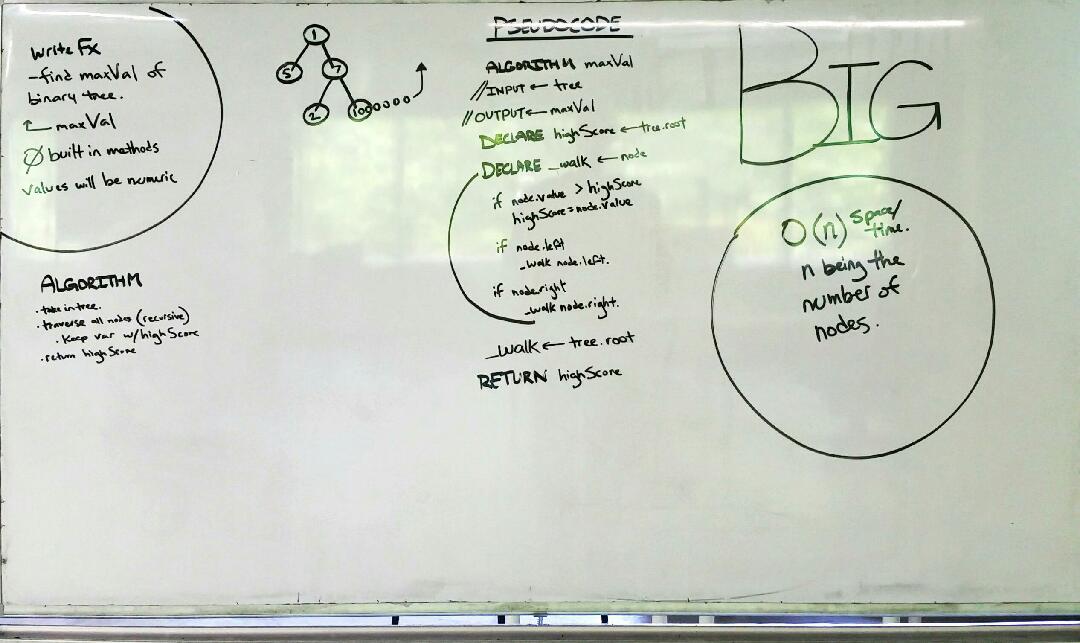 write Fx
-find maxVal of
binary tree.
↳ maxVal
∅ built in methods
values will be numeric
ALGORITHM
· take in tree.
· traverse all nodes (recursive)
· Keep var w/highScore
· return highScore
1
5 7
2 100
PSEUDOCODE
ALGORITHM maxVal
//INPUT ← tree
//OUTPUT ← maxVal
DECLARE highScore ← tree.root
DECLARE _walk ← node
if node.value > highScore
highScore = node.value
if node.left
_walk node.left.
if node.right
_walk node.right.
_walk ← tree.root
RETURN highScore
BIG
O(n) space/
time.
n being the
number of
nodes.